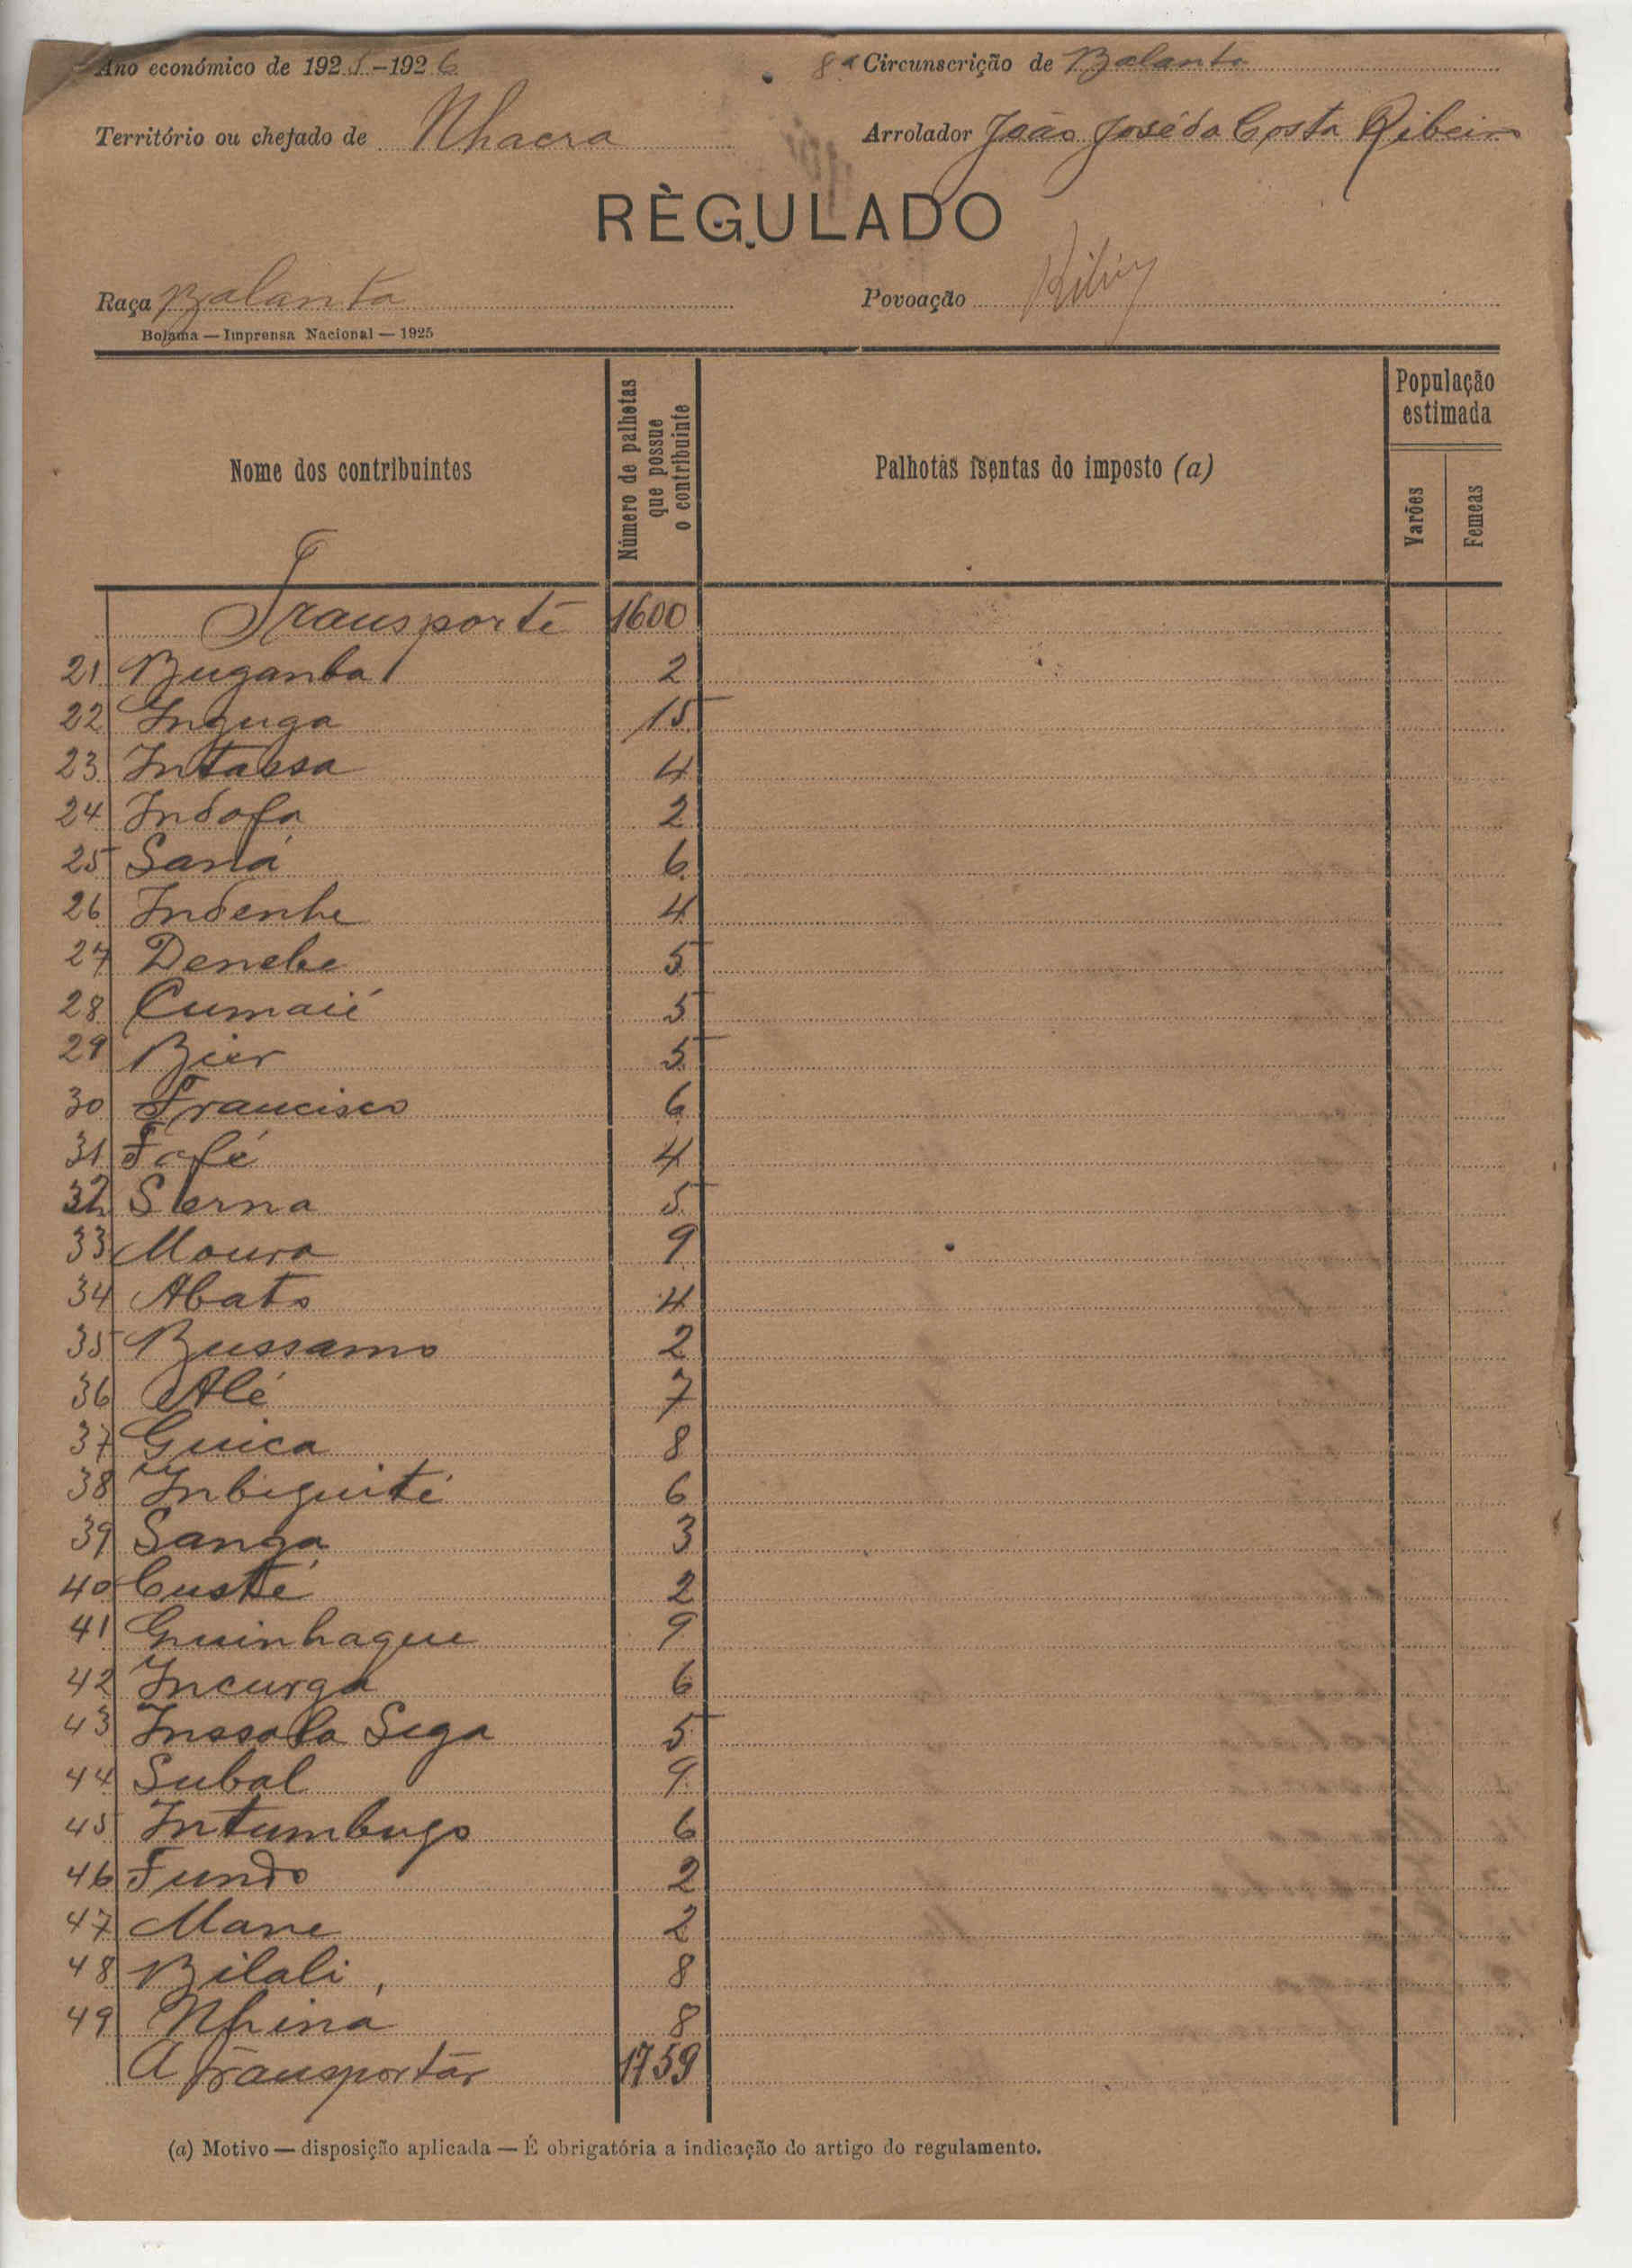 Ano económico de 1925-1926
8ª Circunscrição de Balanta
Território ou chefado de Nhacra
Arrolador João José da Costa Ribeiro
RÈGULADO
Raça Balanta
Povoação
Bolama — Imprensa Nacional — 1925
Nome dos contribuintes
Número de palhotas que possue o contribuinte
Palhotas isentas do imposto (a)
População estimada
Varões
Femeas
Transporte 1600
21 Buganba 2
22 Inguga 15
23 Intassa 4
24 Indafa 2
25 Saná 6
26 Indenhe 4
27 Denebe 5
28 Cumaié 5
29 Bier 5
30 Francisco 6
31 Fafé 4
32 Sterna 5
33 Moura 9
34 Abato 4
35 Bussamo 2
36 Alé 7
37 Guica 8
38 Inbiguité 6
39 Sanga 3
40 Custé 2
41 Guinhaque 9
42 Incurga 6
43 Inssala Siga 5
44 Subal 9
45 Intumbugo 6
46 Fundo 2
47 Mane 2
48 Bilali 8
49 Nhiná 8
A transportar 1759
(a) Motivo — disposição aplicada — É obrigatória a indicação do artigo do regulamento.